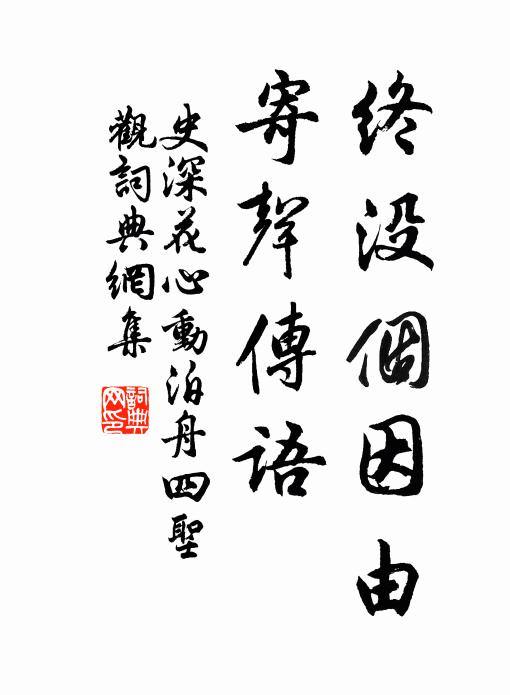 終没個因由
寄聲傳語
史深花心動泊舟四聖
觀詞典網集
詞典
网印